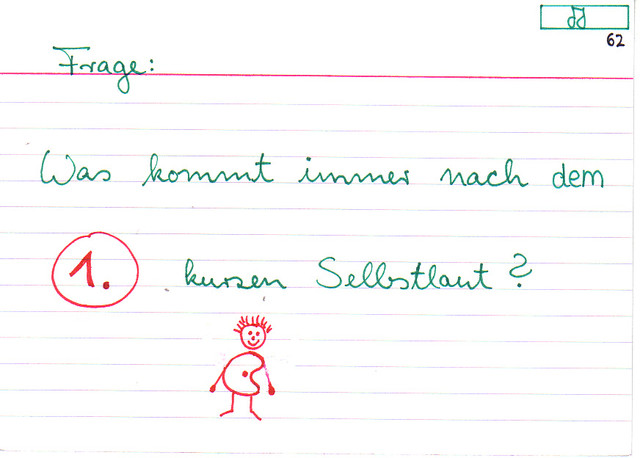 62
Frage:
Was kommt immer nach dem
1. kurzen Selbstlaut?